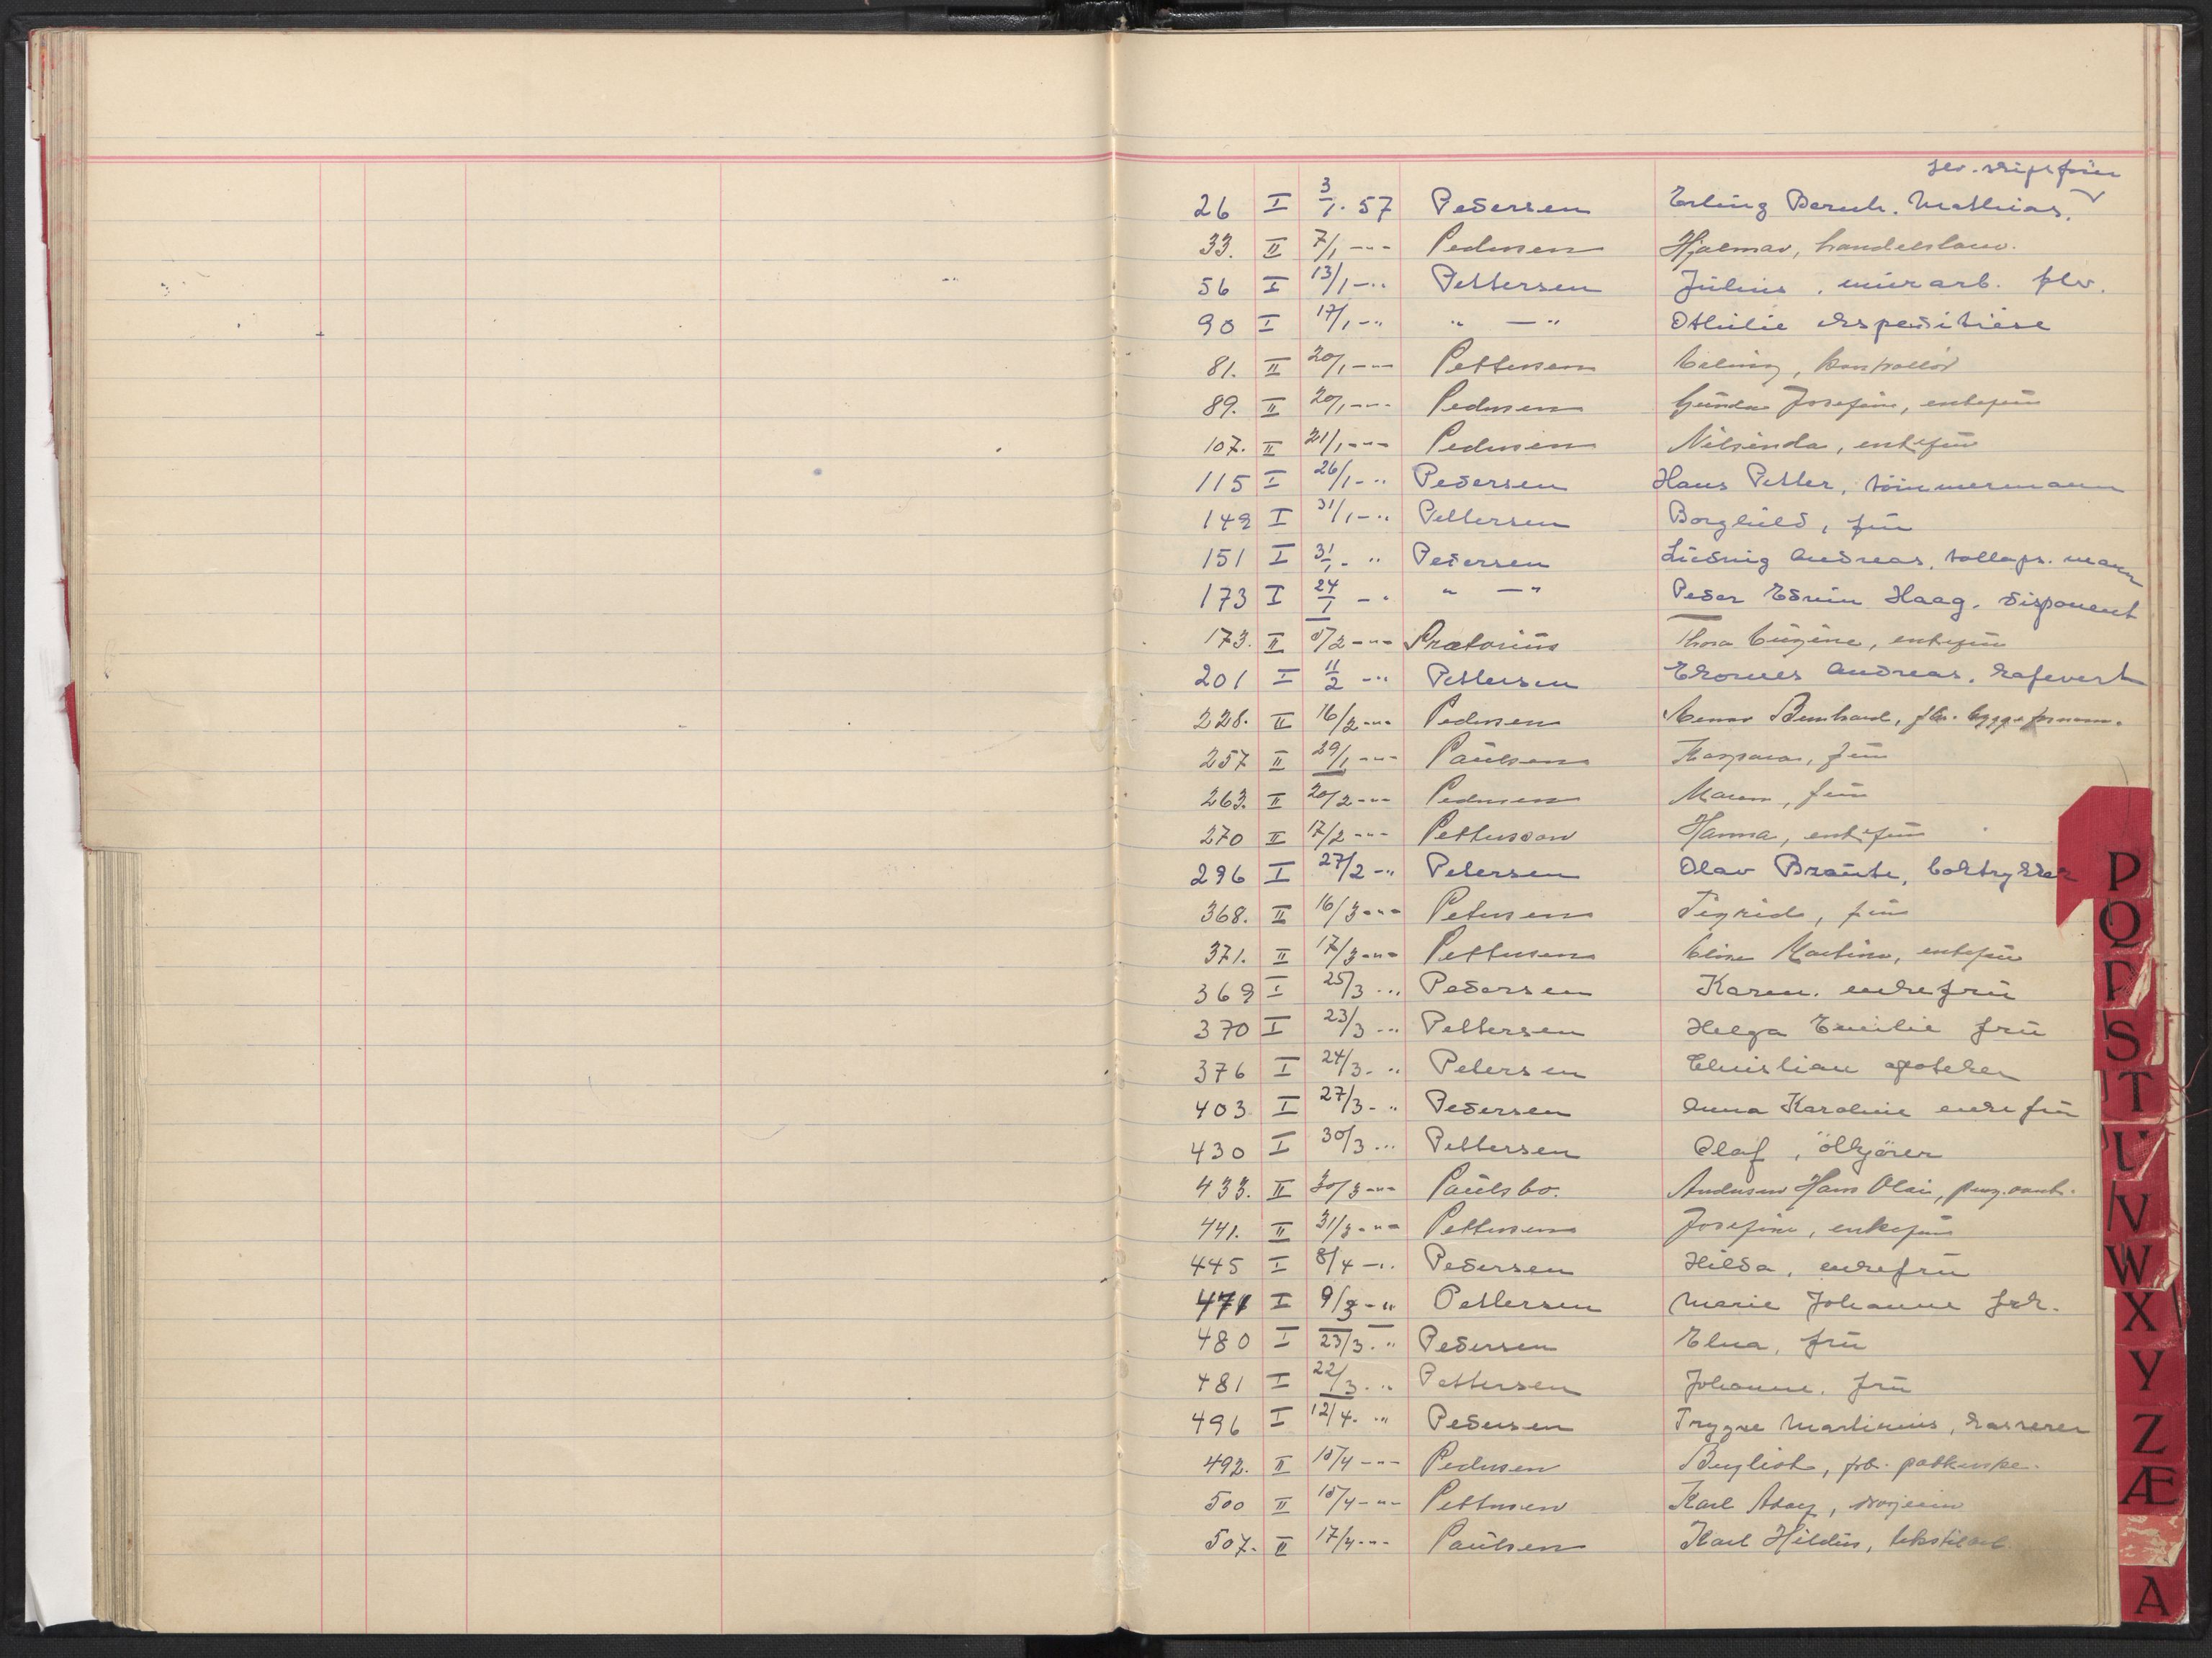 26 I 3/1. 57 Pedersen Erling Bernh. Mathias.
33. II 7/1 -"- Pedersen Hjalmar, handelslauv.
56 I 13/1 -" Pettersen Julius, murarb. flv.
90 I 17/1 -" " — " Othilie ekspeditise
81. II 20/1 -"- Pettersen kontrollør
89. II 20/1 -"- Pedersen Gunda Josefine, enkefru
107. II 21/1 -"- Pedersen Nilsinda, enkefru
115 I 26/1 -" Pedersen Hans Petter, tömmermann
149 I 31/1 -" Pettersen Borghild, fru
151 I 31/1 - " Pedersen Ludvig Andreas, tollops. mann
173 I 24/1 - " " — " Peder Edvin Haag, disponent
173. II 5/2 -"- Prætorius Thora Eugenie, enkefru
201 I 11/2 -" Pettersen Andreas, kafevert
228. II 16/2 -"- Pedersen Bernhard, fhv. byggeformann.
257 II 29/1 -"- Paulsen Kaspara, fru
263. II 20/2 -"- Pedersen Maren, fru
270 II 17/2 -"- Petterson Hanna, enkefru
296 I 27/2 -" Petersen Olav Braute, boktrykker
368. II 16/3 -"- Petersen Sigrid, fru
371. II 17/3 -"- Pettersen Eline Martine, enkefru
369 I 25/3 -" Pedersen Karen, enkefru
370 I 23/3 -" Pettersen Helga Emilie fru
376 I 24/3 - " Petersen Christian apoteker
403 I 27/3 - " Pedersen Anna Karoline enkefru
430 I 30/3 -" Pettersen Olaf, ölkjörer
433. II 30/3 -"- Paulsbo. Andersen Hans Olai,
441. II 31/3 -"- Pettersen Josefine, enkefru
445 I 8/4 -" Pedersen Hilda, enkefru
471 I 9/3 -" Pettersen Marie Johanne frk.
480 I 23/3. " Pedersen Elna, fru
481 I 22/3 -" Pettersen Johanne, fru
496 I 12/4. " Pedersen Trygve Martinius, kasserer
492. II 15/4 -"- Pedersen Bergliot, frk.
500 II 15/4 -"- Pettersen Karl
507. II 17/4 -"- Paulsen Karl tekstilarb.
P
Q
R
S
T
U
V
W
X
Y
Z
Æ
A